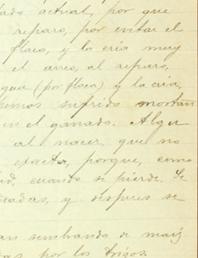 tado actual, por que
reparo, por evitar el
flaca, y la cria muy
el arreo, al reparo,
gua (por flaca) y la cria,
emos sufrido mortan
en el ganado. Algu
al nacer, que no
exacta, porque, como
cuando se pierde. Le
cadas, y despues se
an sembrando de maiz
as por los trigos